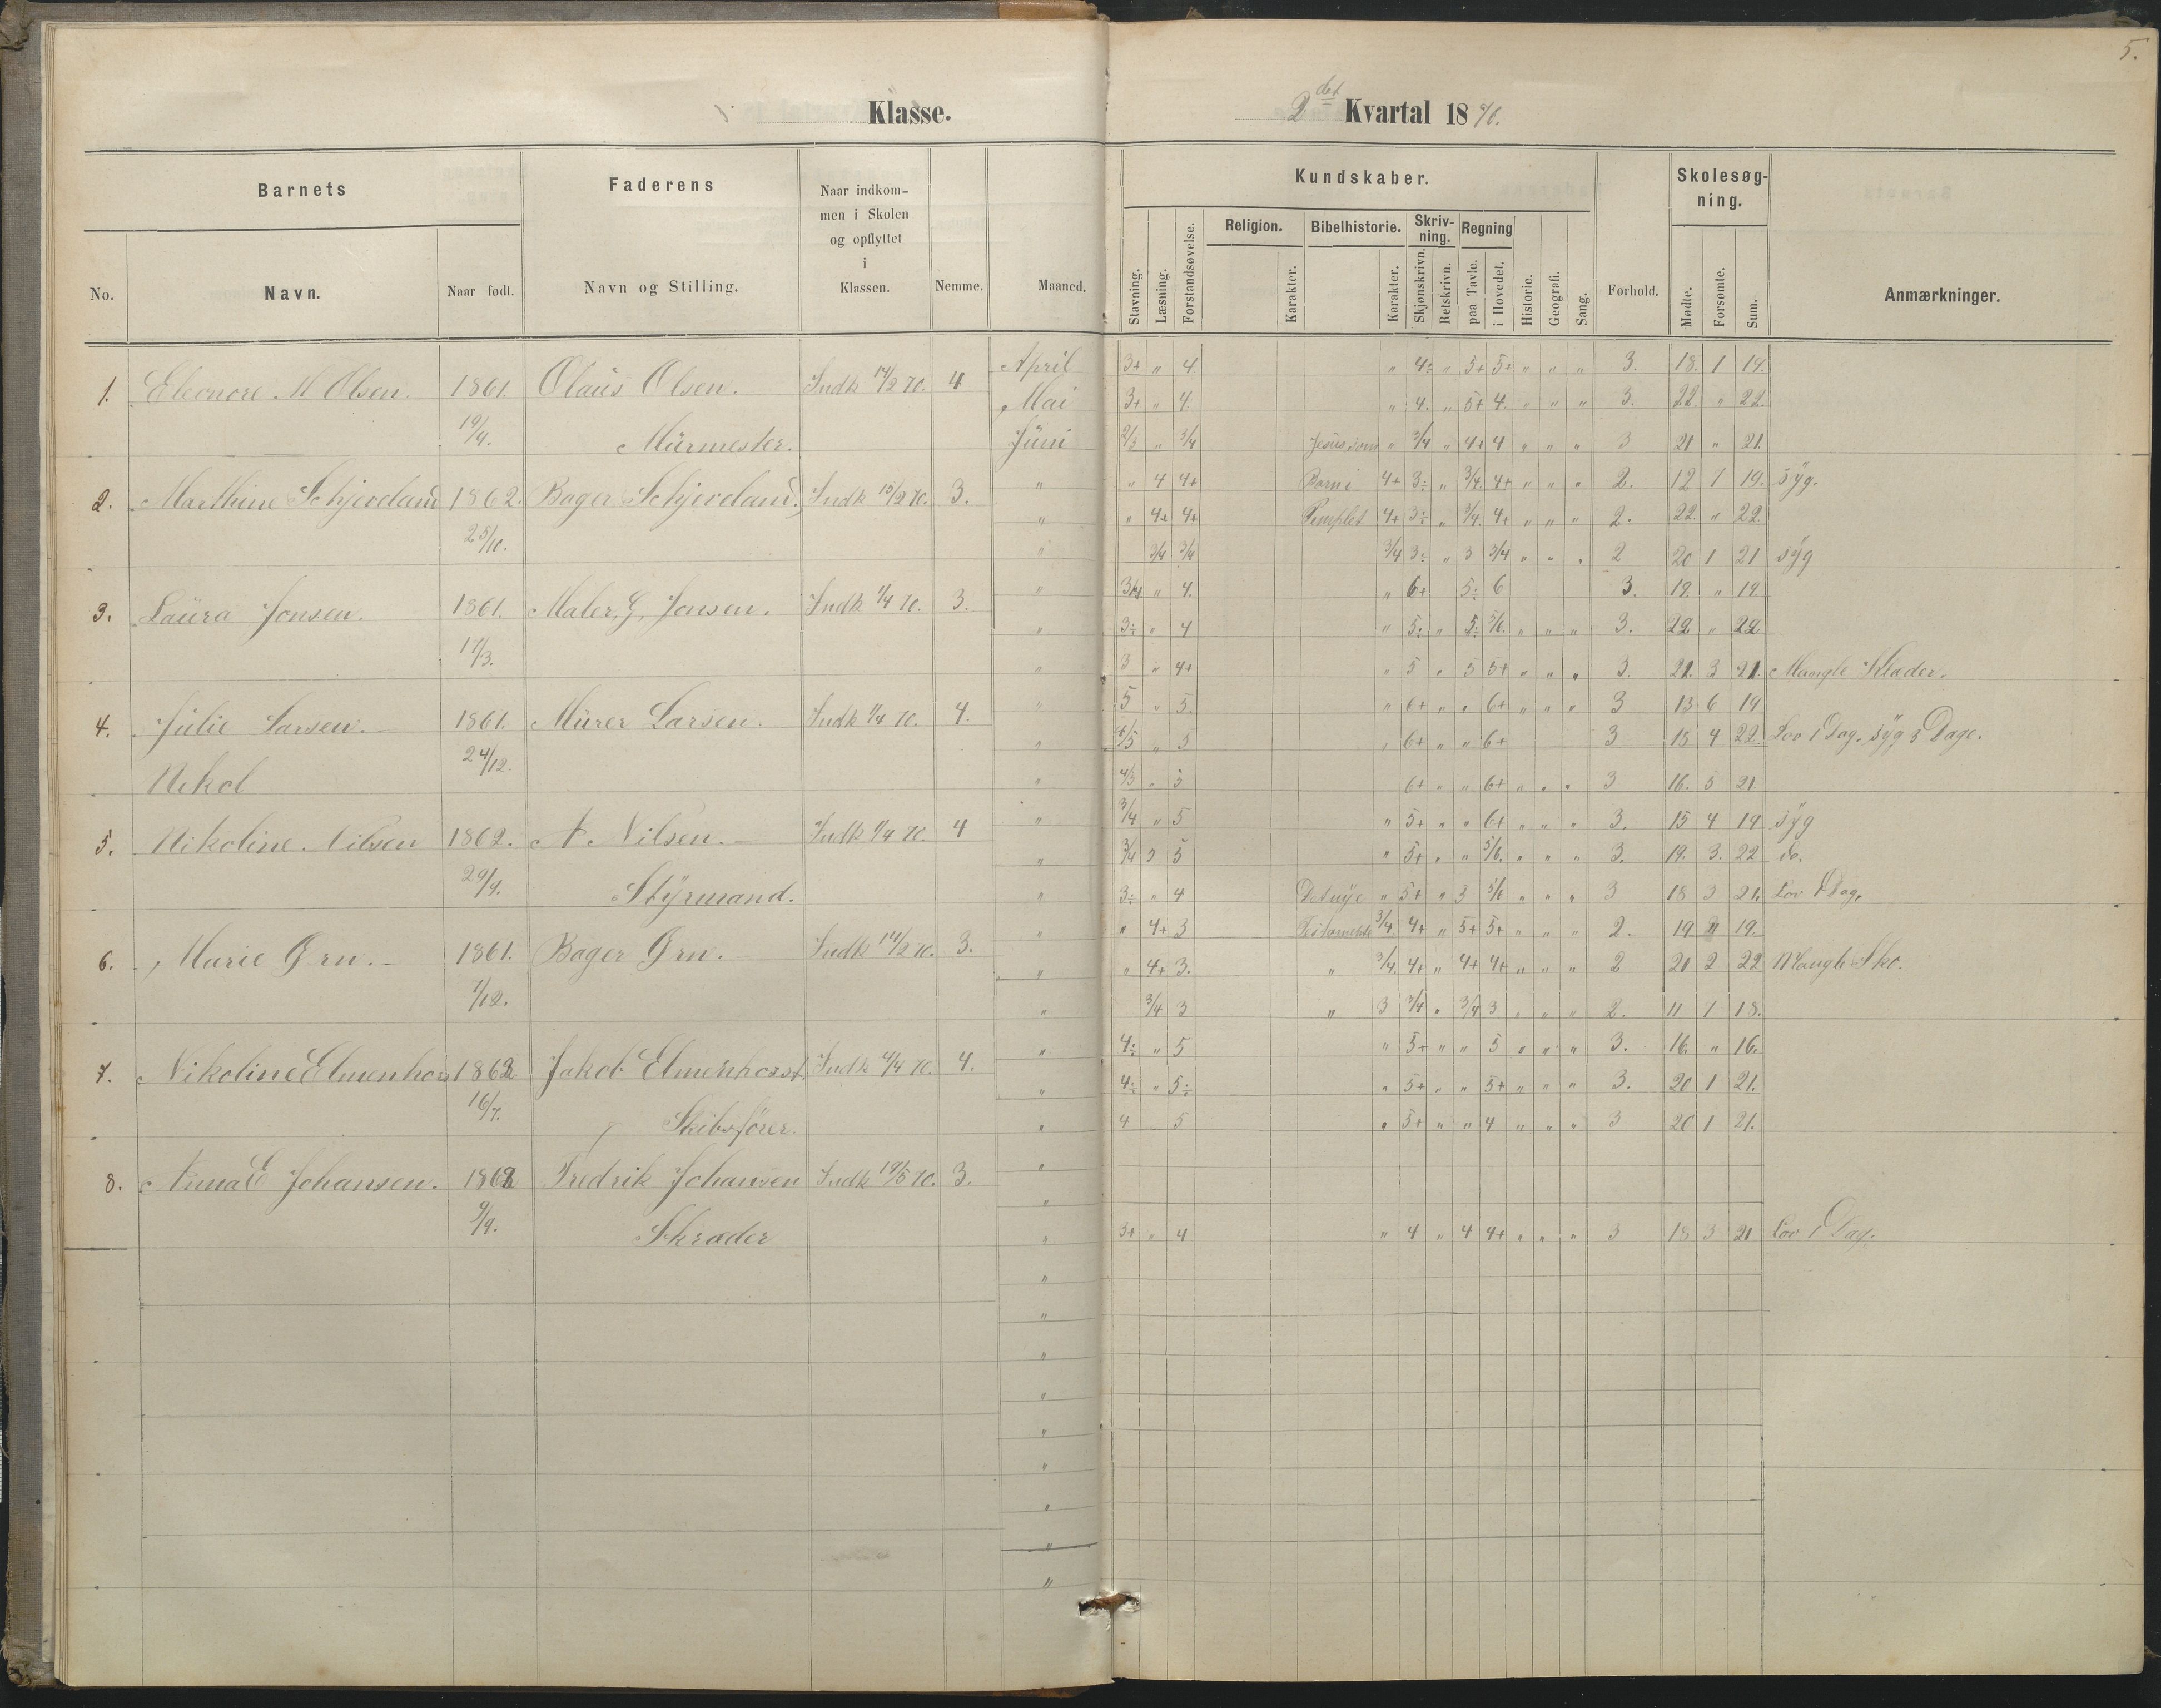 5.
Klasse.
2det Kvartal 1870.
Barnets
Faderens
Naar indkom-
men i Skolen
og opflyttet
i
Klassen.
No.
Navn.
Naar født.
Navn og Stilling.
Nemme.
Maaned.
Kundskaber.
Stavning.
Læsning.
Forstandsøvelse.
Religion.
Karakter.
Bibelhistorie.
Karakter.
Skriv-
ning.
Skjønskrivn.
Retskrivn.
Regning
paa Tavle.
i Hovedet.
Historie.
Geografi.
Sang.
Forhold.
Skolesøg-
ning.
Mødte.
Forsømte.
Sum.
Anmærkninger.
1. Eleonore M Olsen. 1861. Olaus Olsen. Indk 14/2 70. 4 April 3+ " 4 " 4÷ " 5+ 5+ " " " 3. 18. 1 19.
Mai 3+ " 4. " 4. " 5+ 4. " " " 3. 22. " 22.
19/9. Mürmester. Jüni 2/3 " 3/4 Jesus som " 3/4 " 4+ 4 " " " 3 21 " 21.
2. Marthine Schjerdam 1862. Bager Schjerdam. Indk 15/2 70. 3. " " 4 4+ Barn i 4+ 3÷ " 3/4. 4+ " " " 2. 12 7 19. syg.
" " 4+ 4+ Templet 4+ 3÷ " 3/4. 4+ " " " 2. 22. " 22.
25/10. " 3/4 3/4 3/4 3÷ " 3 3/4 " " " 2 20 1 21 syg
3. Laura Jonsen. 1861. Maler, G, Jonsen. Indk 1/4 70. 3. " 3/4 " 4. " 6+ 5÷ 6 3. 19. " 19
" 3÷ " 4 " 5÷ " 5÷ 5/6. " " " 3. 22 " 22
17/3. " 3 " 4+ " 5 " 5 5+ " " " 3. 21. 3 21. Mangle Klæder.
4. Julie Larsen. 1861. Mürer Larsen. Indk 1/4 70. 4. " 5 " 5. " 6+ " " 6+ " " " 3 13 6 19
" 4/5 " 5 " 6+ " " 6+ 3 18 4 22. Lov 1 Dag. syg 3 Dage.
Nikol 24/12. " 4/5 " 5 6+ " " 6+ " " " 3 16. 5 21
5. Nikoline Nilsen 1862. A Nilsen. Indk 1/4 70. 4 " 3/4 " 5 " 5+ " " 6+ " " " 3. 15 4 19 syg
" 3/4 " 5 " 5+ " " 5/6. " " " 3. 19. 3. 22 do.
29/9. Styrmand. " 3÷ " 4 Det nye " 5+ " 3 5/6 " " " 3 18 3 21. Lov 1 Dag.
6. Marie Grn. 1861. Bager Grn. Indk 14/2 70. 3. " " 4+ 3 Testamente 3/4 4+ " 5+ 5+ " " " 2. 19 " 19.
" " 4+ 3. " 3/4. 4+ " 4+ 4+ " " " 2 20 2 22 Mangle Sko.
7/12. " 3/4 3 " 3 3/4 " 3/4 3 " " " 2. 1 18.
7. Nikoline Elmenhorst 1862 Jakob Elmenhorst Indk 4/4 70. 4. " 4÷ " 5 " 5+ " " 5 " " " 3. 16. " 16.
" 4÷ " 5÷ " 5+ " " 5+ " " " 3. 20 1 21.
16/7. Skibsfører. " 4 5 " 5+ " " 4 " " " 3 20 1 21.
8. Anna E Johansen. 1862 Fredrik Johansen Indk 19/5 70. 3. "
"
9/9. Skræder " 3+ " 4 " 4 " 4 4+ " " " 3 18 3 21 Lov 1 Dag.
"
"
"
"
"
"
"
"
"